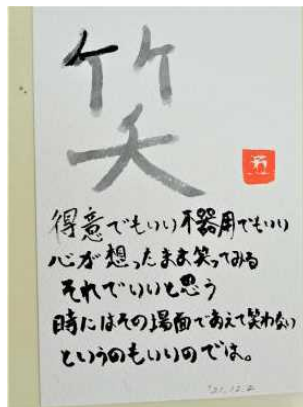 笑
得意でもいい不器用でもいい
心が想ったまま笑ってみる
それでいいと思う
時にはその場面であえて笑わない
というのもいいのでは。
'21.12.2